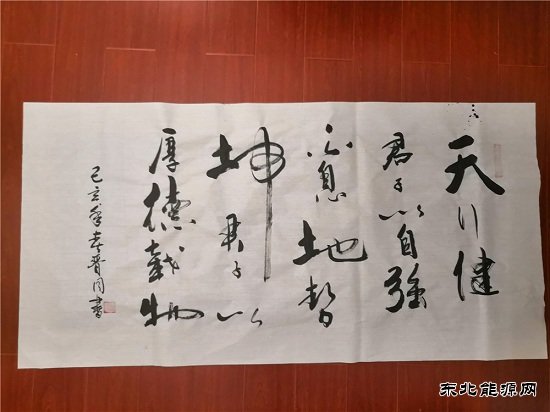 天行健
君子以自强
不息地势
坤君子以
厚德载物
己亥年李晋同书
东北能源网